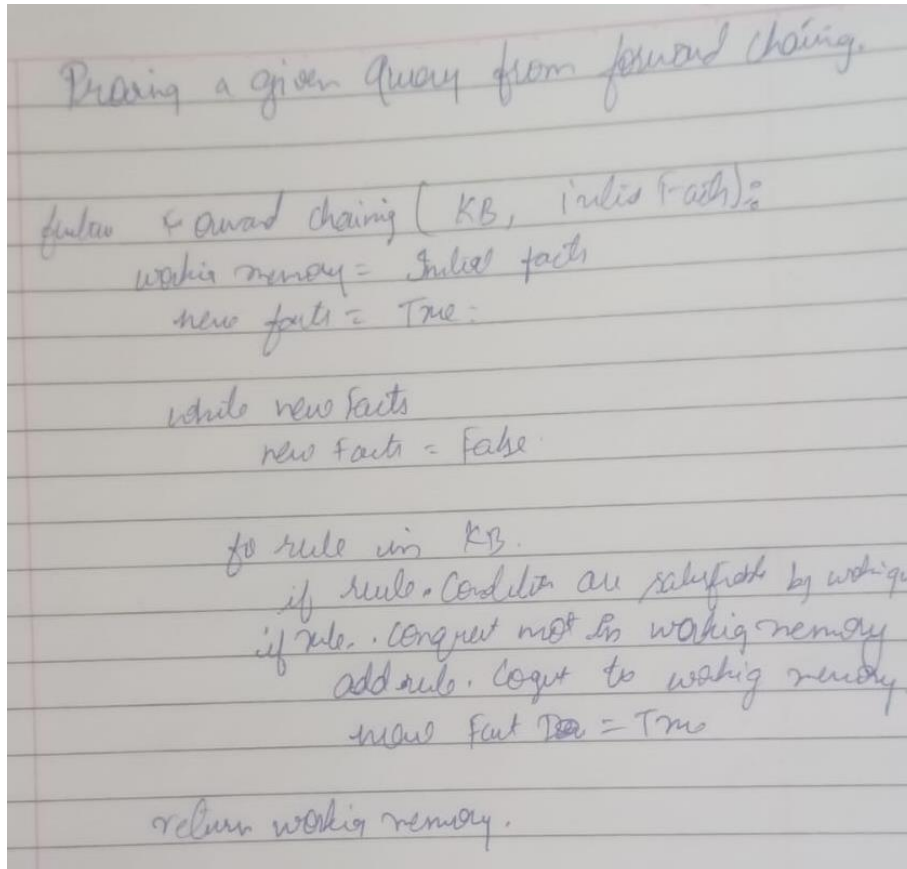 Proving a given Query from forward chaing.
Forward chainig ( KB, Facts):
workin memory = Initial facts
new facts = True
while new Facts
new Facts = False
fo rule in KB.
if rule. Condition are by
if rule. not in workig memory
add rule. to workig memory
new Fact = True
return workig memory.